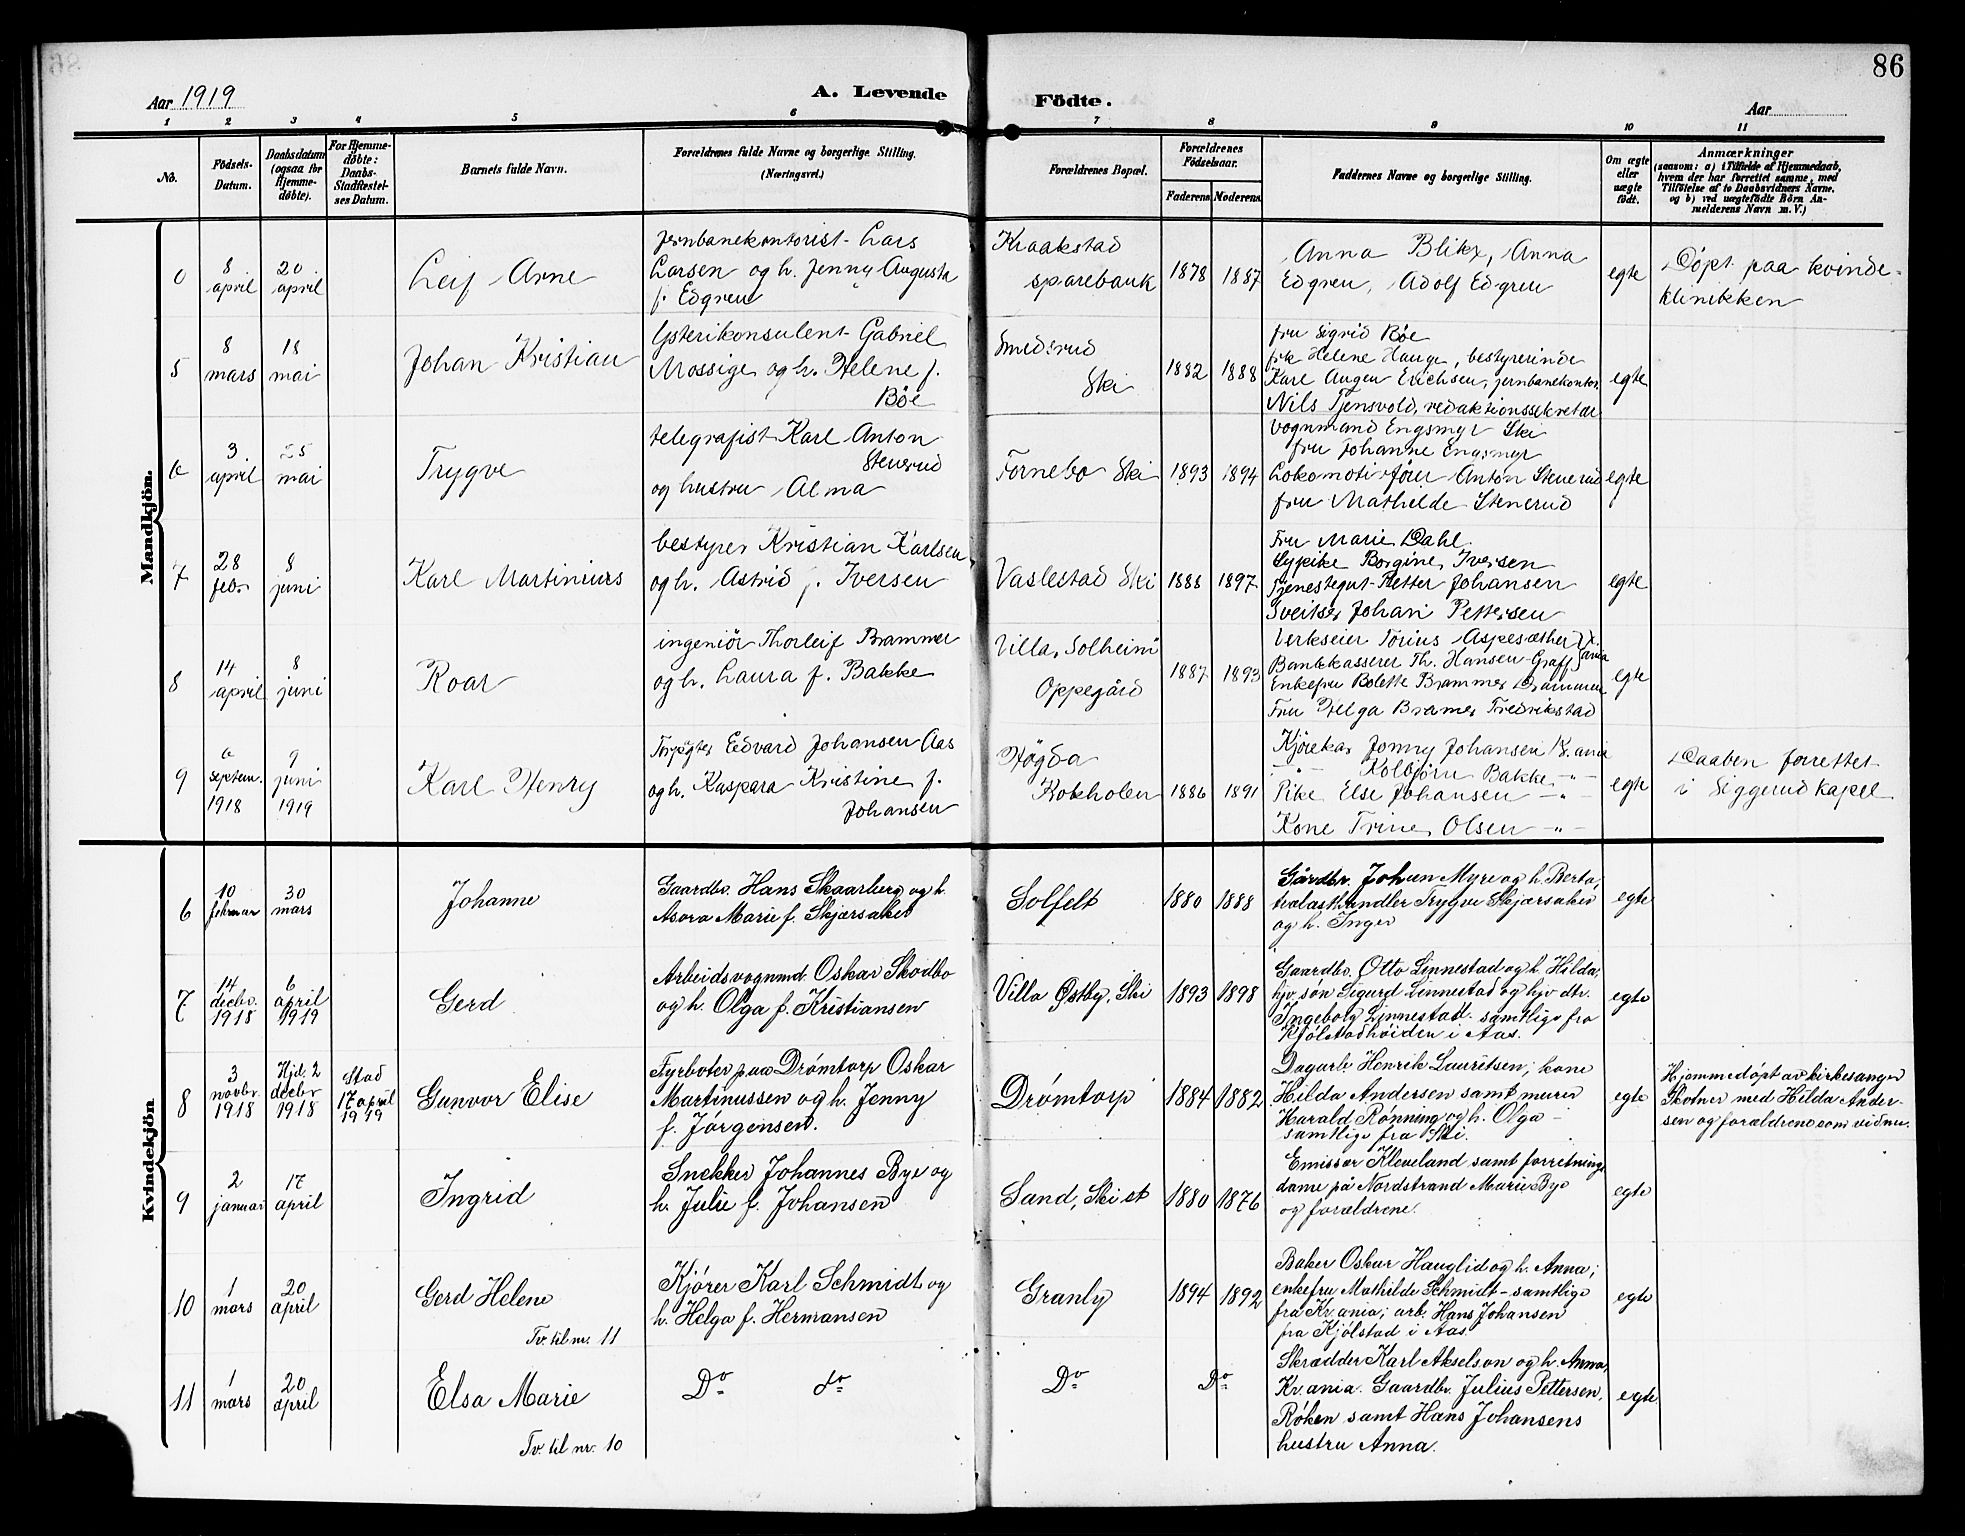 86
Aar 1919
A. Levende
Födte.
Aar
1 2 3 4 5 6 7 8 9 10 11
No.
Födsels-
Datum.
Daabsdatum
(ogsaa for
Hjemme-
døbte).
For Hjemme-
døbte:
Daabs-
Stadfæstel-
ses Datum.
Barnets fulde Navn.
Forældrenes fulde Navne og borgerlige Stilling.
(Næringsvei.)
Forældrenes Bopæl.
Forældrenes
Födselsaar.
Faderens
Moderens
Faddernes Navne og borgerlige Stilling.
Om ægte
eller
uægte
født.
Anmærkninger
(saasom: a) i Tilfælde af Hjemmedaab,
hvem der har forrettet samme, med
Tilföielse af to Daabsvidners Navne.
og b) ved uægtefødte Börn An-
melderens Navn m. V.)
Mandkjön.
0
8
april
20
april
Leif Arne
Jernbanekontorist Lars
Larsen og h. Jenny Augusta
f. Edgren
Kraakstad
sparebank
1878
1887
Anna Blikx, Anna
Edgren, Adolf Edgren
egte
Døpt paa kvinde-
klinikken
5
8
mars
18
mai
Johan Kristian
Ysterikonsulent Gabriel
Mossige og h. Helene f.
Böe
Smedsrud
Ski
1882
1888
fru Sigrid Bøe
frk Helene Hauge, bestyrerinde
Karl Augen Erichsen, jernbanekontor.
Nils Tjensvold, redaktionssekretær
egte
6
3
april
25
mai
Trygve
telegrafist Karl Anton
Stenerud
og hustru Alma
Fornebo Ski
1893
1894
Vognmand Engsmyr Ski
fru Johanne Engsmyr
Lokomotivfører Anton Stenerud
fru Mathilde Stenerud
egte
7
28
feb.
8
juni
Karl Martinius
bestyrer Kristian Karlsen
og h. Astrid f. Iversen
Vaslestad Ski
1888
1897
Fru Marie Dahl
Sypike Borgine Iversen
Tjenestegut Petter Johansen
Sveitser Johan Pettersen
egte
8
14
april
8
juni
Roar
ingeniör Thorleif Brammer
og h. Laura f. Bakke
Villa Solheim
Oppegård
1887
1893
Verkseier Torius Aspesæther } K.
Bankkasserer Th. Hansen-Graff } ania
Enkefru Bolette Brammer Drammen
Fru Helga Bramer Fredrikstad
egte
9
6
septem.
1918
9
juni
1919
Karl Henry
Forpagter Edvard Johansen Aas
og h. Kaspara Kristine f.
Johansen
Høgda
Kokholen
1886
1891
Kjørekar Jonny Johansen Kr.ania
-"- Kolbjörn Bakke -"-
Pike Else Johansen -"-
Kone Trine Olsen -"-
egte
Daaben forrettet
i Siggerud kapel
Kvindekjön
6
10
februar
30
mars
Johanne
Gaardbr. Hans Skaarberg og h.
Asora Marie f. Skjærsaker
Solfelt
1880
1888
Gårdbr. Johan Myre og h. Berta,
trælasthandler Trygve Skjærsaker
og h. Inger
egte
7
14
decbr.
1918
6
april
1919
Gerd
Arbeidsvognmd. Oskar Skodbo
og h. Olga f. Kristiansen
Villa Østby, Ski
1893
1898
Gaardbr. Otto Linnestad og h. Hilda,
hjv. søn Sigurd Linnestad og hjv dtr.
Ingeborg Linnestad. samtlige fra
Kjølstadhøiden i Aas.
egte
8
3
novbr.
1918
Hjd. 2
decbr
1918
Stad
17 april
1919
Gunvor Elise
Fyrbøter paa Drømtorp Oskar
Martinussen og h. Jenny
f. Jørgensen.
Drømtorp
1884
1882
Dagarb. Henrik Lauritsen, kone
Hilda Andersen samt murer
Harald Rønning og h. Olga –
samtlige fra Ski.
egte
Hjemmedöpt av kirkesanger
Skotner med Hilda Ander-
sen og forældrene som vidner.
9
2
januar
17
april
Ingrid
Snekker Johannes Bye og
h. Julie f. Johansen
Sand, Ski st
1880
1876
Emissær Kleveland samt forretnings
dame på Nordstrand Marie Bye
og forældrene.
egte
10
1
mars
20
april
Gerd Helene
Tv. til nr. 11
Kjører Karl Schmidt og
h. Helga f. Hermansen
Granly
1894
1892
Baker Oskar Hauglid og h. Anna;
enkefru Mathilde Schmidt – samtlige
fra Kr.ania; arb. Hans Johansen
fra Kjølstad i Aas.
egte
11
1
mars
20
april
Elsa Marie
Tv. til nr. 10
Do do
Do
Do
Skrædder Karl Akselson og h. Anna,
Kr.ania. Gaardbr. Julius Pettersen,
Røken samt Hans Johansens
hustru Anna.
egte